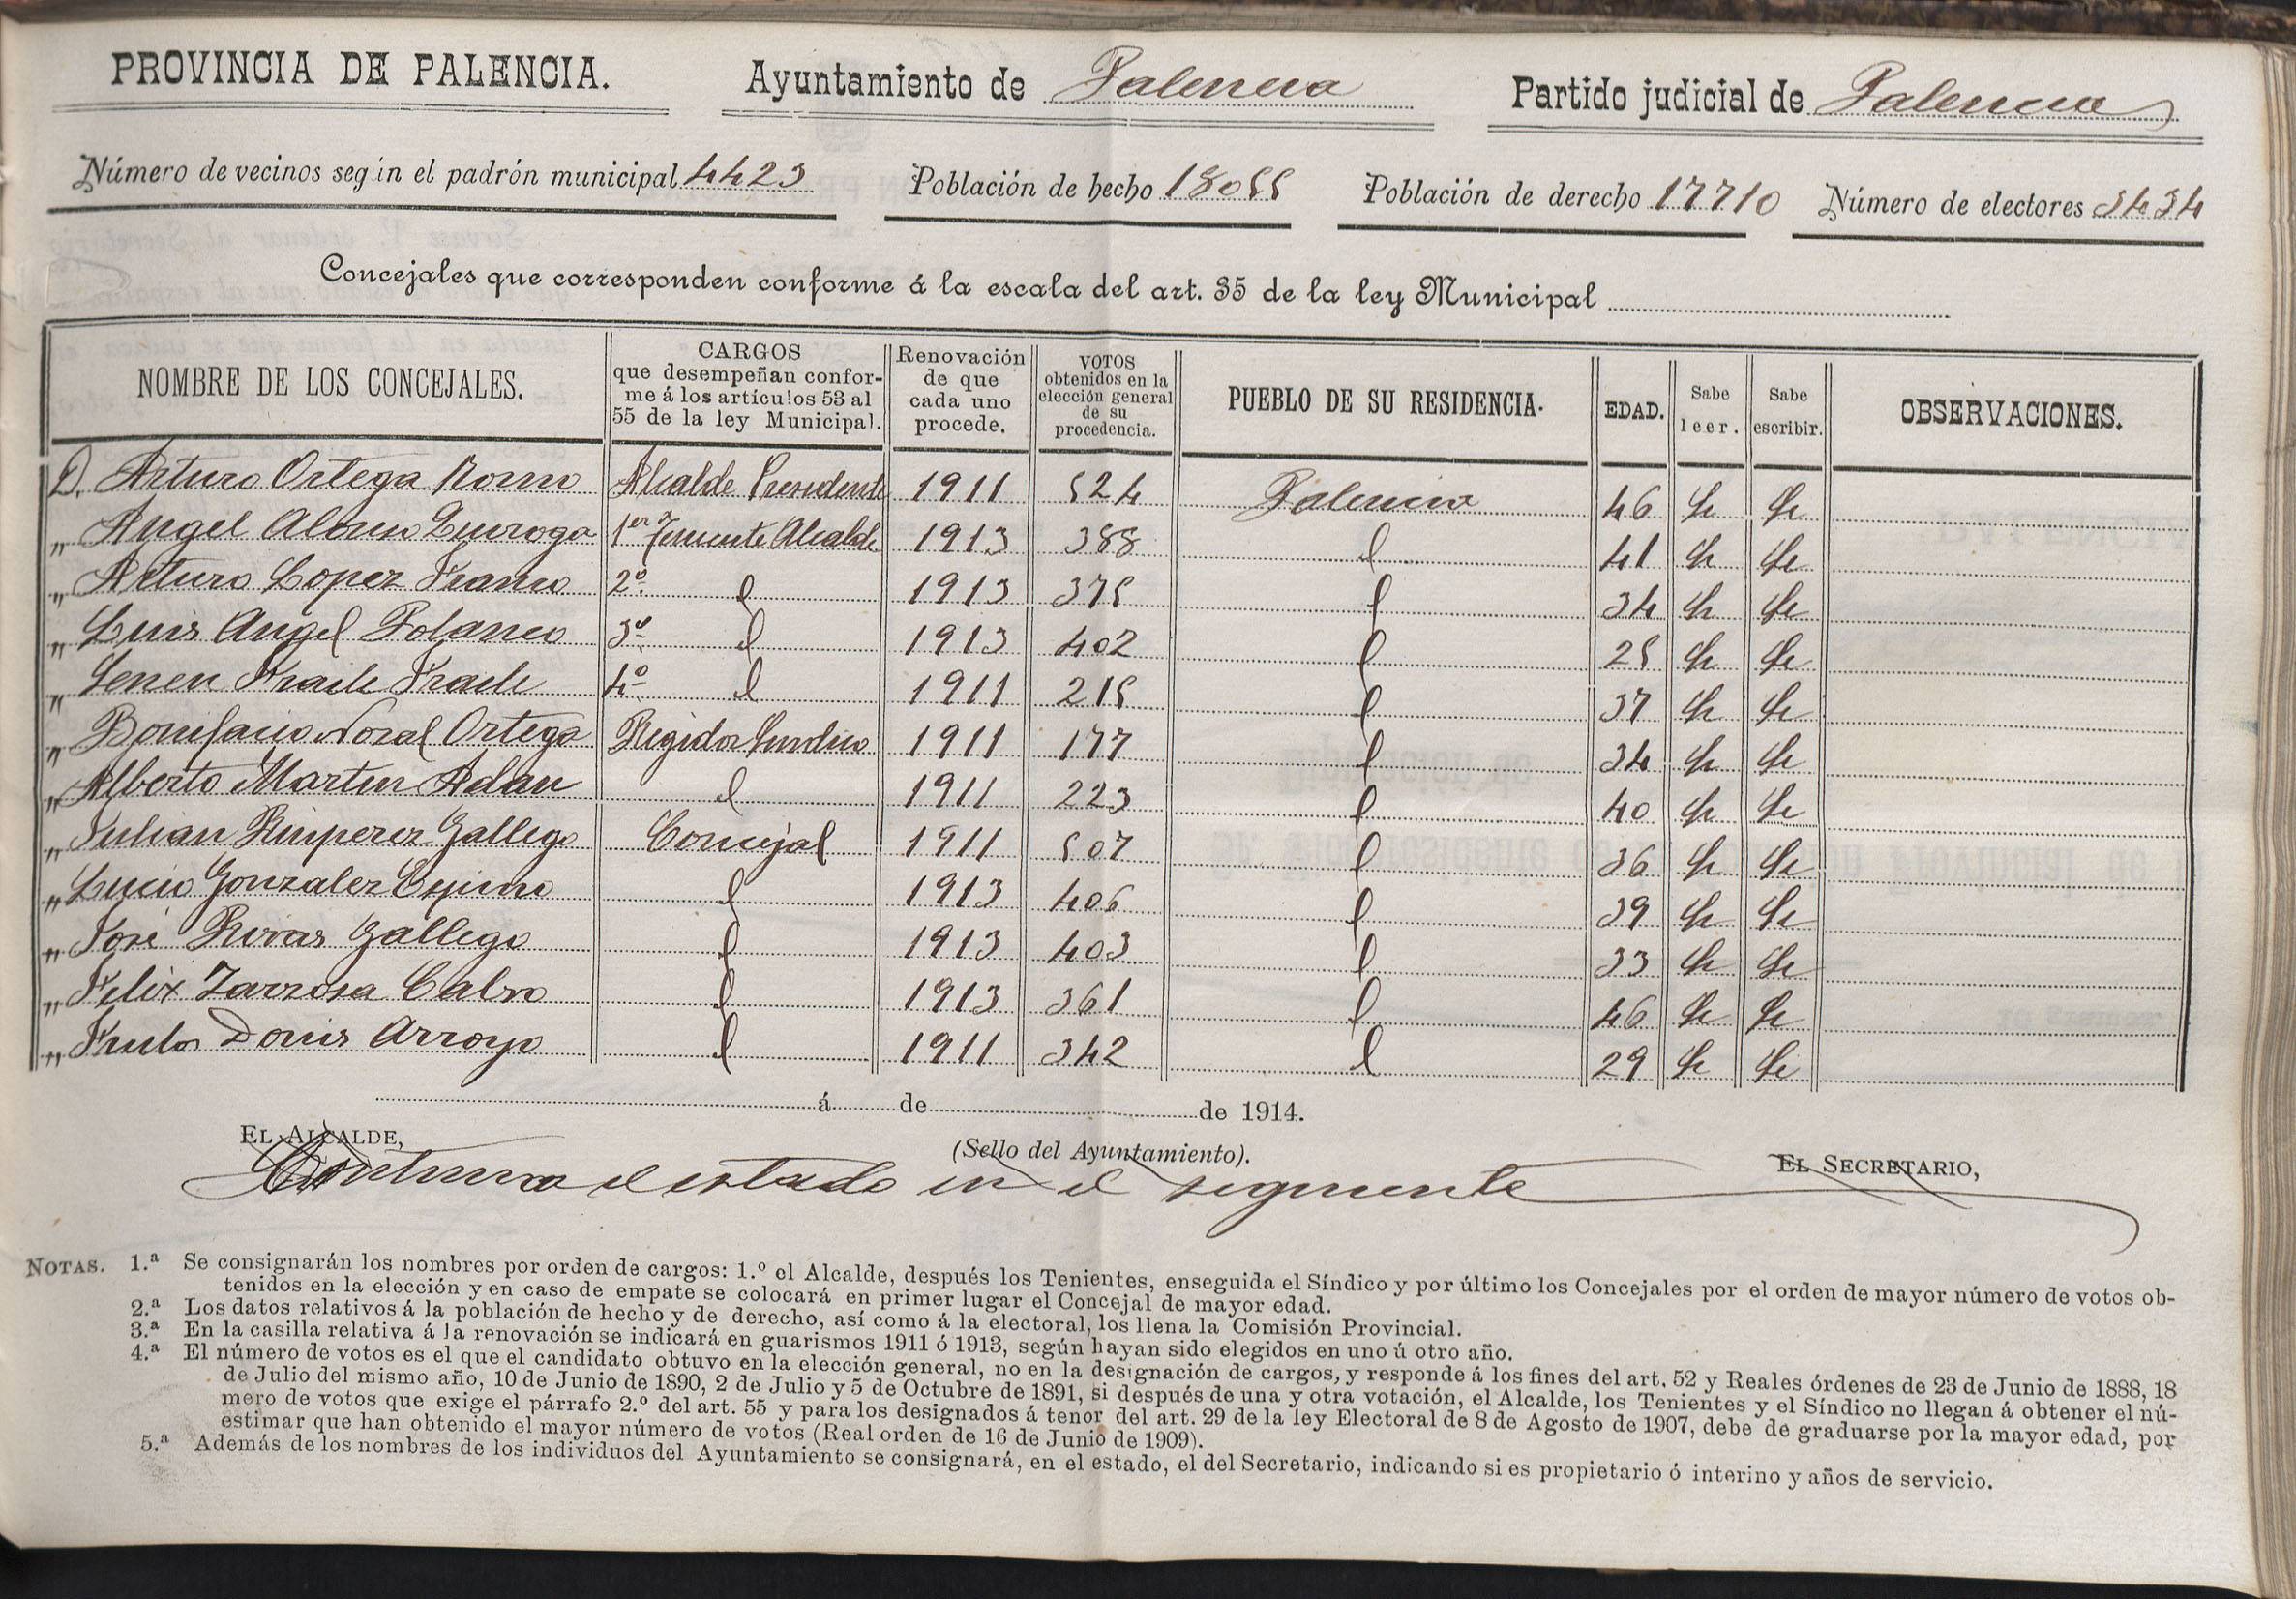 PROVINCIA DE PALENCIA. Ayuntamiento de Palencia Partido judicial de Palencia
Número de vecinos según el padrón municipal 4423 Población de hecho 18055 Población de derecho 17710 Número de electores 3434
Concejales que corresponden conforme á la escala del art. 35 de la ley Municipal
NOMBRE DE LOS CONCEJALES. CARGOS que desempeñan conforme á los artículos 53 al 55 de la ley Municipal. Renovación de que cada uno procede. VOTOS obtenidos en la elección general de su procedencia. PUEBLO DE SU RESIDENCIA. EDAD. Sabe leer. Sabe escribir. OBSERVACIONES.
D. Arturo Ortega Romo Alcalde Presidente 1911 524 Palencia 46 Si Si
„ Angel Alonso Quiroga 1er Teniente Alcalde 1913 388 l 41 Si Si
„ Arturo Lopez Franco 2º l 1913 375 l 34 Si Si
„ Luis Angel Polanco 3º l 1913 402 l 25 Si Si
„ Senen Fraile Fraile 4º l 1911 215 l 37 Si Si
„ Bonifacio Noval Ortega Regidor Sindico 1911 177 l 34 Si Si
„ Alberto Martin Adan l 1911 223 l 40 Si Si
„ Julian Ruiperez Gallego Concejal 1911 507 l 36 Si Si
„ Lucio Gonzalez Espino l 1913 406 l 39 Si Si
„ José Rivas Gallego l 1913 403 l 33 Si Si
„ Felix Zarzosa Calvo l 1913 361 l 46 Si Si
„ Frutos Donis Arroyo l 1911 342 l 29 Si Si
á de de 1914.
EL ALCALDE, (Sello del Ayuntamiento). EL SECRETARIO,
Continua el estado en el siguiente
NOTAS. 1.ª Se consignarán los nombres por orden de cargos: 1.º el Alcalde, después los Tenientes, enseguida el Síndico y por último los Concejales por el orden de mayor número de votos ob-
tenidos en la elección y en caso de empate se colocará en primer lugar el Concejal de mayor edad.
2.ª Los datos relativos á la población de hecho y de derecho, así como á la electoral, los llena la Comisión Provincial.
3.ª En la casilla relativa á la renovación se indicará en guarismos 1911 ó 1913, según hayan sido elegidos en uno ú otro año.
4.ª El número de votos es el que el candidato obtuvo en la elección general, no en la designación de cargos, y responde á los fines del art. 52 y Reales órdenes de 23 de Junio de 1888, 18
de Julio del mismo año, 10 de Junio de 1890, 2 de Julio y 5 de Octubre de 1891, si después de una y otra votación, el Alcalde, los Tenientes y el Síndico no llegan á obtener el nú-
mero de votos que exige el párrafo 2.º del art. 55 y para los designados á tenor del art. 29 de la ley Electoral de 8 de Agosto de 1907, debe de graduarse por la mayor edad, por
estimar que han obtenido el mayor número de votos (Real orden de 16 de Junio de 1909).
5.ª Además de los nombres de los individuos del Ayuntamiento se consignará, en el estado, el del Secretario, indicando si es propietario ó interino y años de servicio.